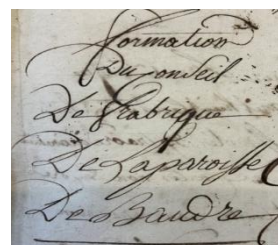 formation
Du Conseil
De fabrique
De Laparoisse
De Baudre